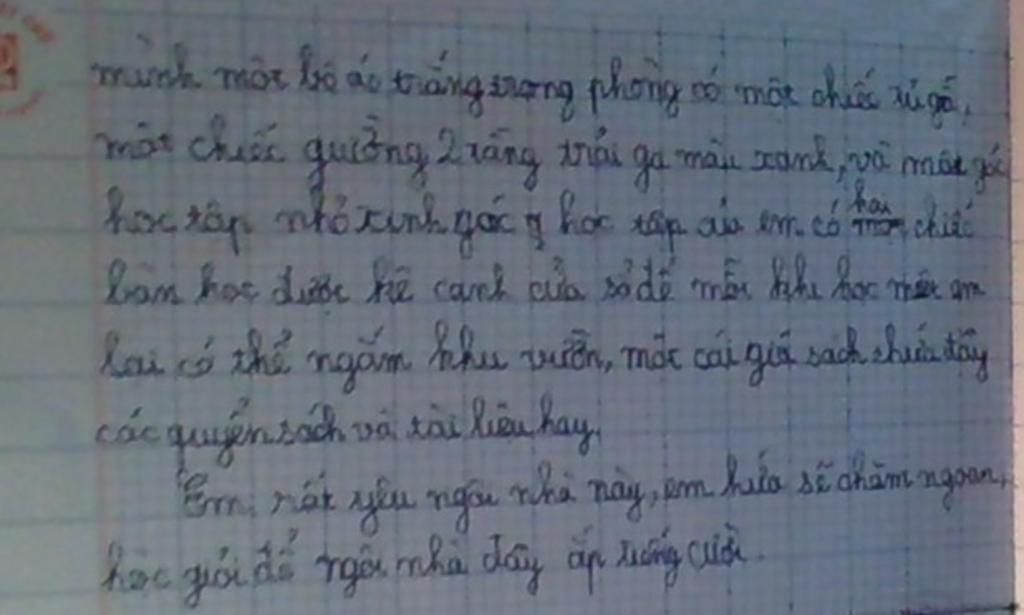 mình một bộ áo trắng trong phòng có một chiếc tủ gỗ,
một chiếc giường 2 tầng trải ga màu xanh, và một góc
học tập nhỏ xinh góc học tập của em có hai chiếc
bàn học được kê cạnh cửa sổ để mỗi khi học mệt em
lại có thể ngắm khu vườn, một cái giá sách chứa đầy
các quyển sách và tài liệu hay.
Em rất yêu ngôi nhà này, em hứa sẽ chăm ngoan,
học giỏi để ngôi nhà đầy ắp tiếng cười.